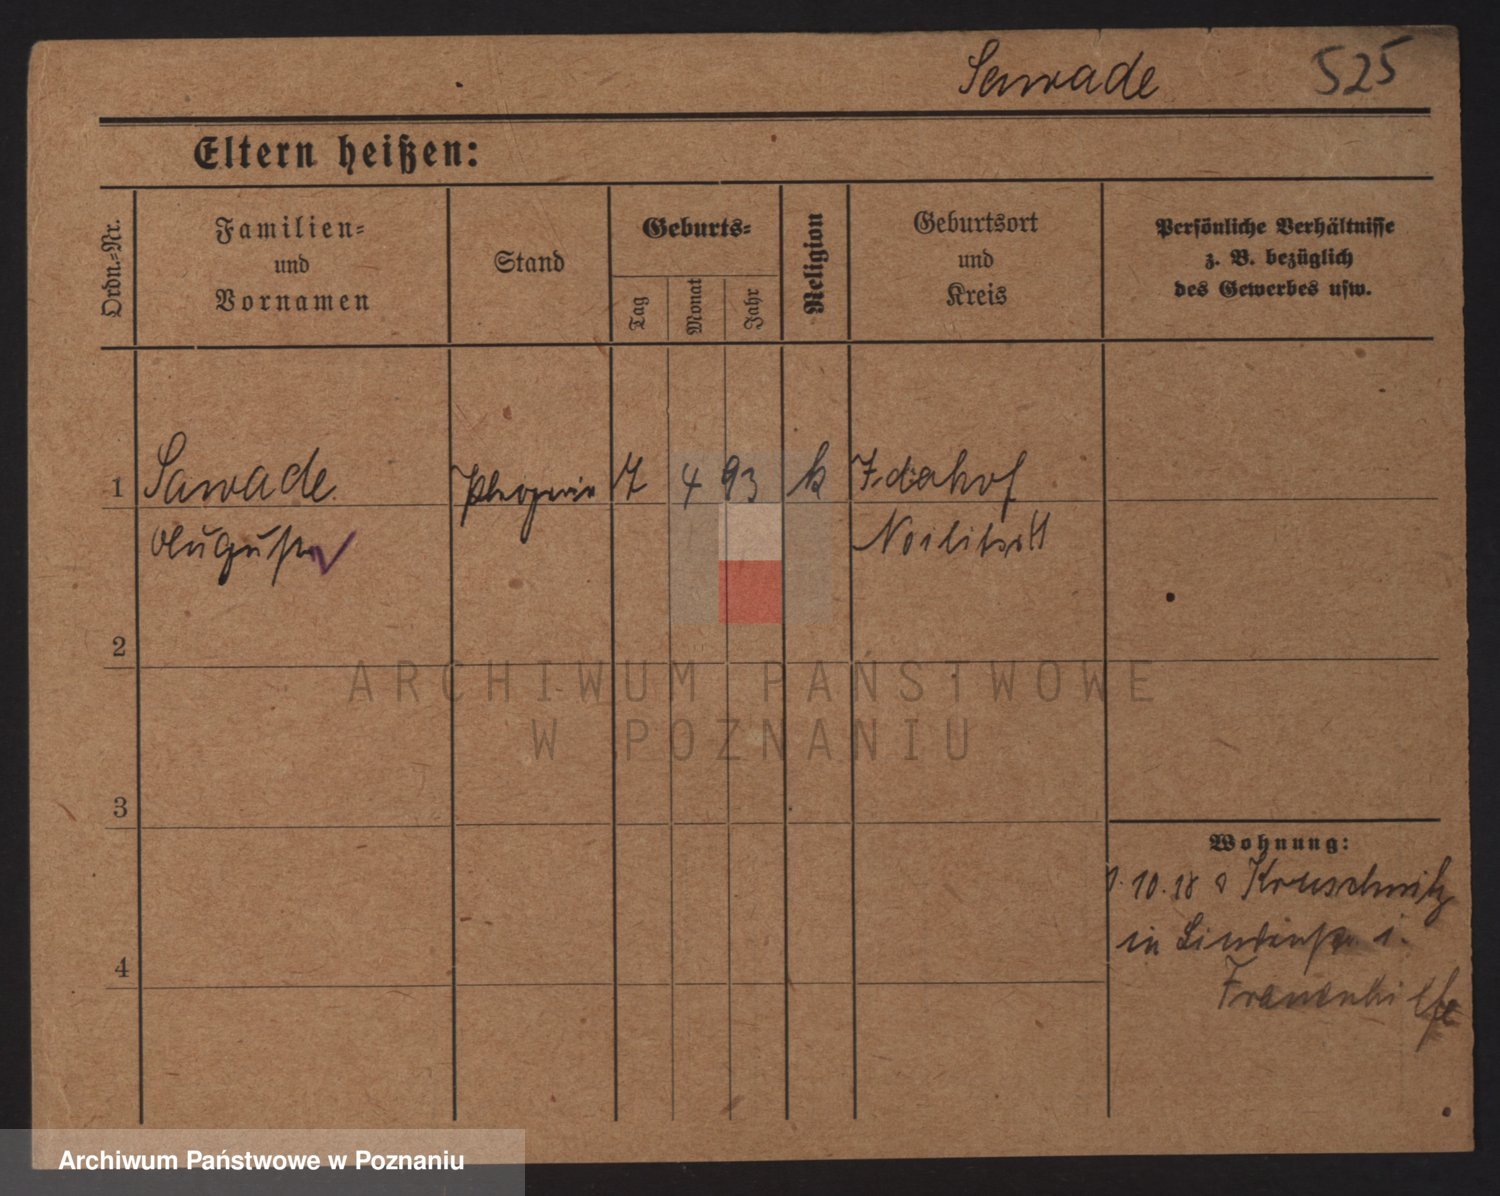 Sawade 525
Eltern heißen:
Ordn.-Nr.
Familien-
und
Vornamen
Stand
Geburts-
Tag
Monat
Jahr
Religion
Geburtsort
und
Kreis
Persönliche Verhältnisse
z. B. bezüglich
des Gewerbes usw.
1 Sawade 7 4 93 k Idahof
2
3
4
ARCHIWUM PAŃSTWOWE
W POZNANIU
Wohnung:
1.10.18 Kruschwitz
in i.
Frauenhilfe
Archiwum Państwowe w Poznaniu